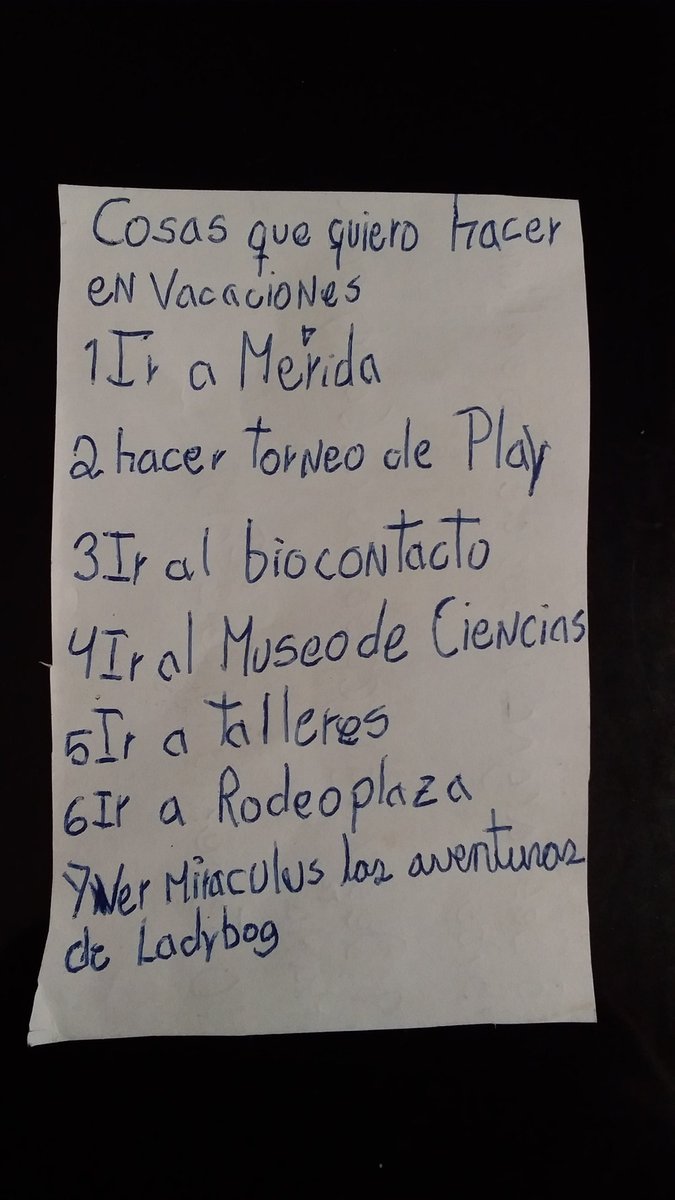 Cosas que quiero hacer
en Vacaciones
1 Ir a Mérida
2 hacer torneo de Play
3 Ir al biocontacto
4 Ir al Museo de Ciencias
5 Ir a talleres
6 Ir a Rodeoplaza
7 Ver Miraculus las aventuras
de Ladybog